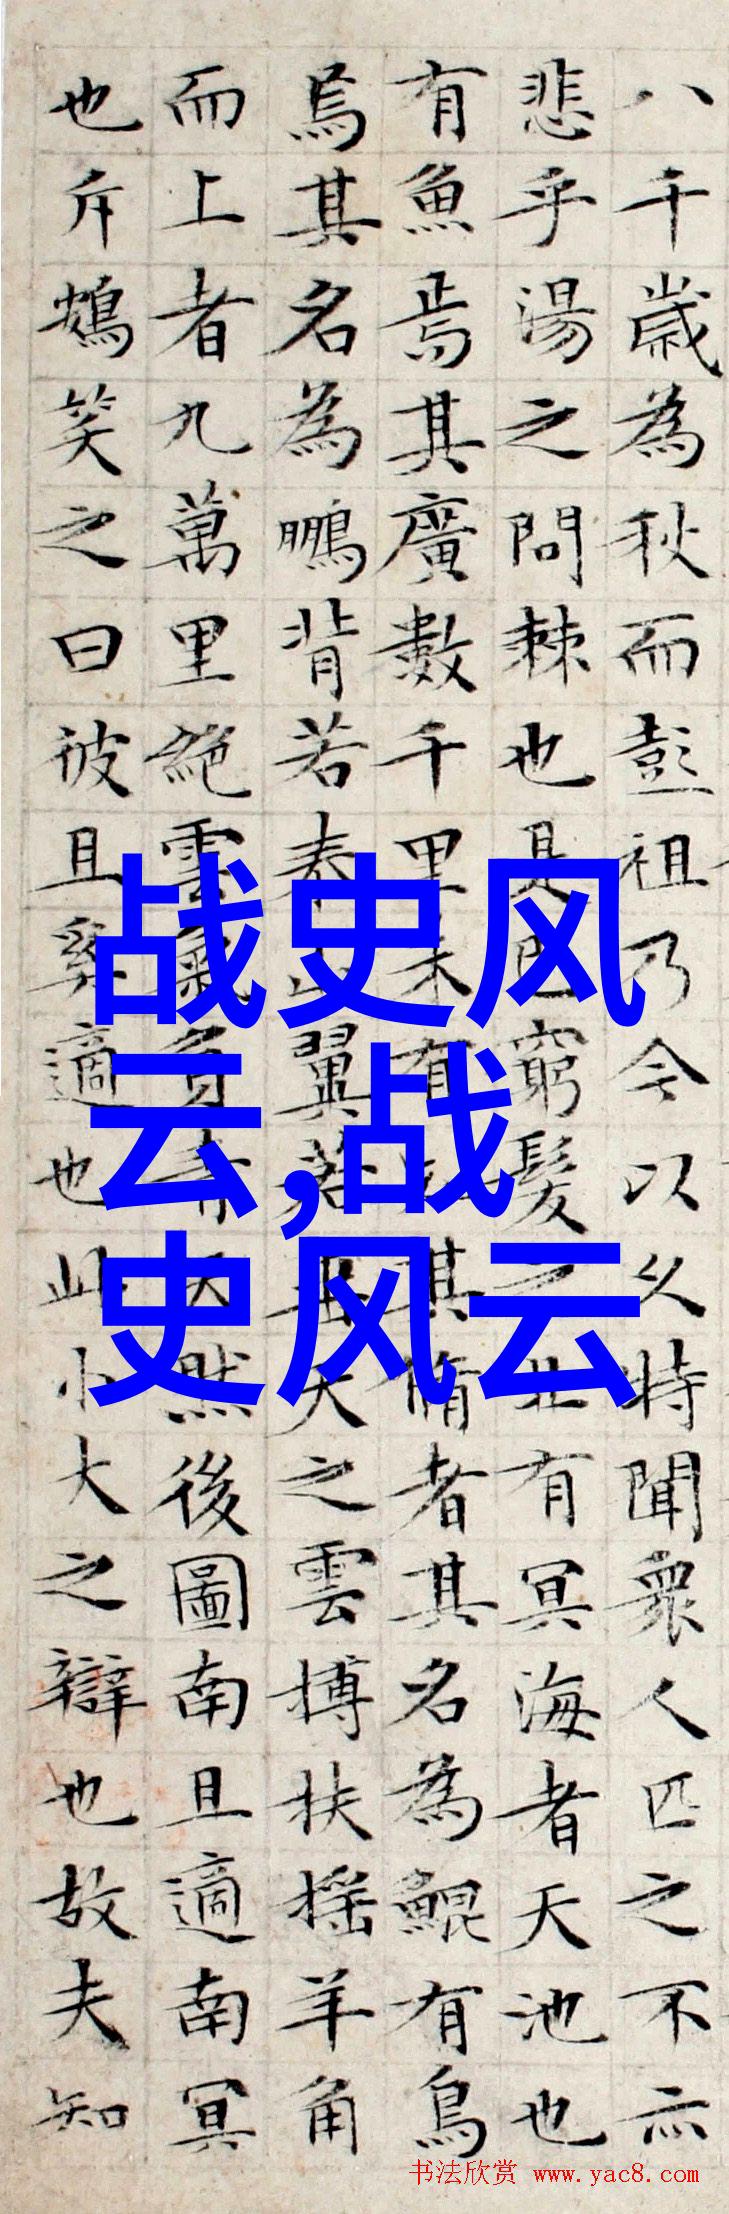 八千歲為秋而彭祖乃今以久特聞衆人匹之不亦
悲乎湯之問棘也是已窮髮之北有冥海者天池也
有魚焉其廣數千里未有其脩者其名為鯤有鳥
焉其名為鵬背若泰山翼若垂天之雲搏扶搖羊角
而上者九萬里絕雲氣負青天然後圖南且適南冥
也斥鴳笑之曰彼且奚適也此小大之辯也故夫知
战史风
云,战
史风云
书法欣赏 www.yac8.com